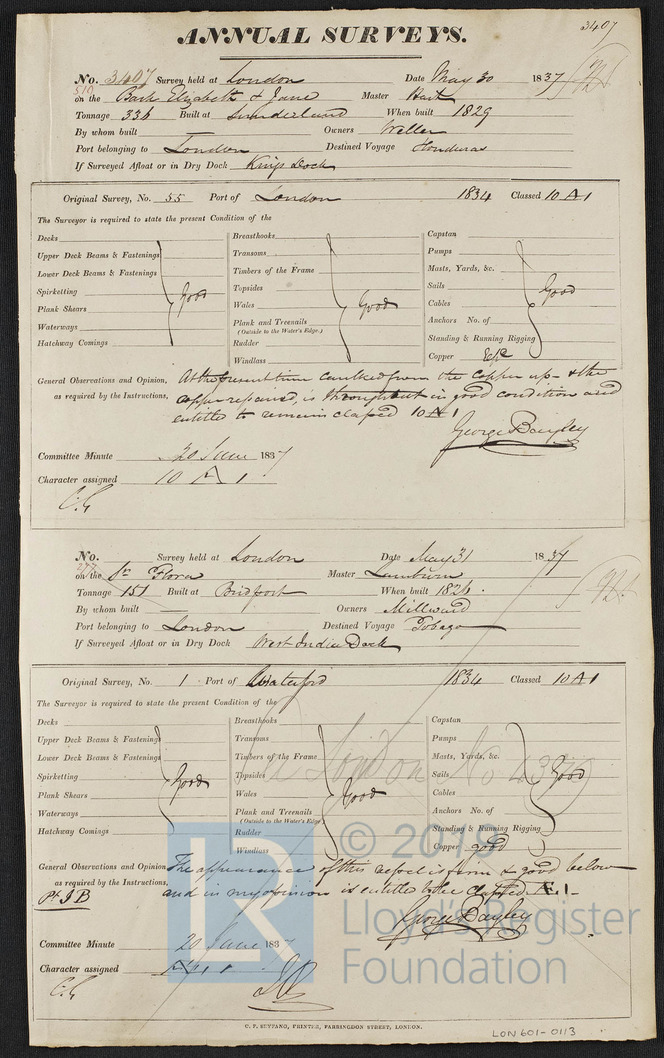 3407
ANNUAL SURVEYS.
No. 3407 Survey held at London Date May 30 1837
510
on the Bark Elizabeth & Jane Master Hart
Tonnage 336 Built at Sunderland When built 1829
By whom built — Owners Weller
Port belonging to London Destined Voyage Honduras
If Surveyed Afloat or in Dry Dock Kings Dock
Original Survey, No. 55 Port of London 1834 Classed 10 A 1
The Surveyor is required to state the present Condition of the
Decks
Upper Deck Beams & Fastenings
Lower Deck Beams & Fastenings
Spirketting
Plank Shears
Waterways
Hatchway Comings
Good
Breasthooks
Transoms
Timbers of the Frame
Topsides
Wales
Plank and Treenails
(Outside to the Water's Edge.)
Rudder
Windlass
Good
Capstan
Pumps
Masts, Yards, &c.
Sails
Cables
Anchors No. of
Standing & Running Rigging
Copper
Good
General Observations and Opinion, At the present time caulked from the copper up - & the
as required by the Instructions, copper repaired, is throughout in good condition and
entitled to remain classed 10 A 1
George Bayley
Committee Minute 20 June 1837
Character assigned 10 A 1
No. Survey held at London Date May 31 1837
277
on the Sr Flora Master
Tonnage 151 Built at Bridport When built 1826.
By whom built — Owners Millward
Port belonging to London Destined Voyage Tobago
If Surveyed Afloat or in Dry Dock West India Dock
Original Survey, No. 1 Port of Waterford 1834 Classed 10 A 1
The Surveyor is required to state the present Condition of the
Decks
Upper Deck Beams & Fastenings
Lower Deck Beams & Fastenings
Spirketting
Plank Shears
Waterways
Hatchway Comings
Good
Breasthooks
Transoms
Timbers of the Frame
Topsides
Wales
Plank and Treenails
(Outside to the Water's Edge
Rudder
Windlass
Good
Capstan
Pumps
Masts, Yards, &c.
Sails
Cables
Anchors No. of
Standing & Running Rigging
Copper good
Good
London No 4379
General Observations and Opinion The appearance of this vessel is firm & good below
as required by the Instructions, and in my opinion is entitled to be classed Æ 1
George Bayley
Committee Minute 20 June 1837
Character assigned
C. F. SEYFANG, PRINTER, FARRINGDON STREET, LONDON.
LON 601-0113
© 2019
LR
Lloyd's Register
Foundation